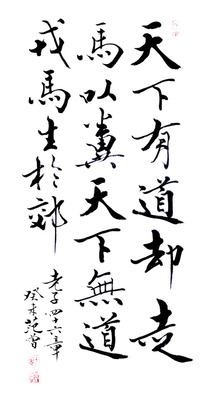 天下有道却走
馬以糞天下無道
戎馬生於郊
老子四十六章
癸未范曾